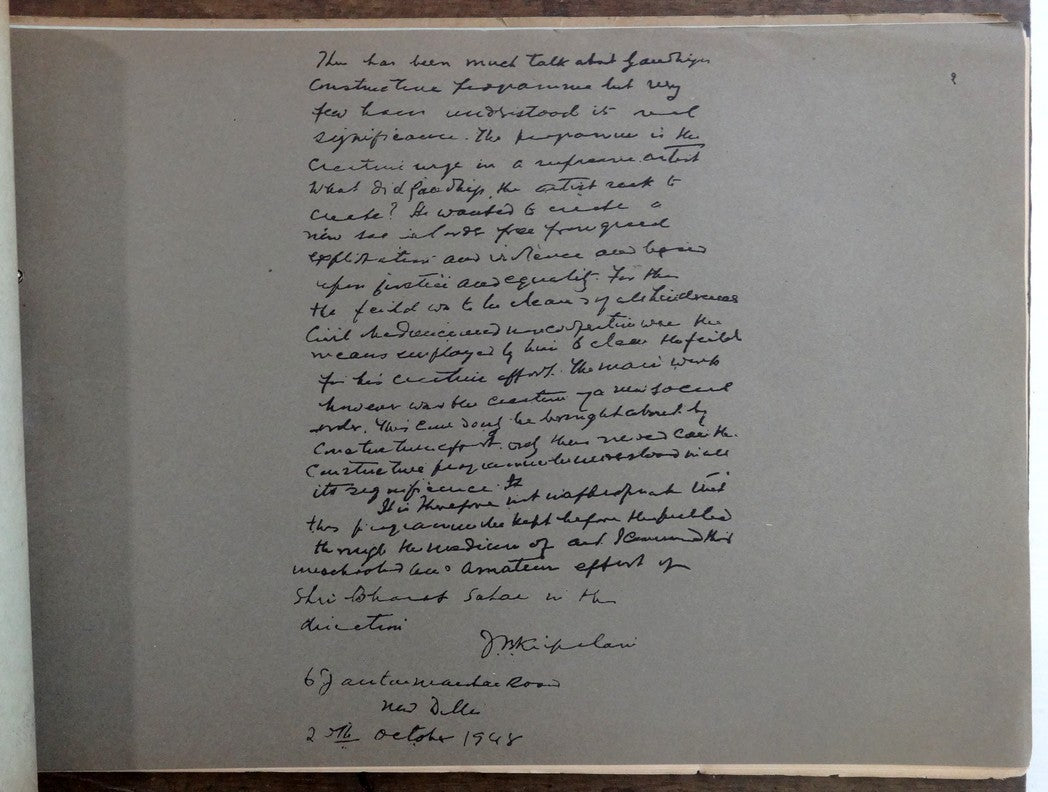 There has been much talk about Gandhiji's
Constructive Programme but very
few have understood its real
significance. The programme is the
Creative urge in a supreme artist
What did Gandhiji, the artist seek to
create? He wanted to create a
new social order free from greed
exploitation and violence and based
upon justice and equality. For this
the feild was to be cleared of all hindrances
Civil disobedience and noncooperation were the
means employed by him to clear the feild
for his creative effort. The main work
however was the creation of a new social
order. This can only be brought about by
Constructive effort. only then can the
Constructive programme be understood in all
its significance. It
It is therefore not inappropriate that
this programme be kept before the public
through the medium of art. I commend this
amateur effort of
Shri Bharat Sahae in this
direction
J.B. Kripalani
6 Jantar Mantar Road
New Delhi
October 1948